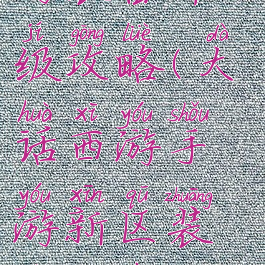 jí gōng lüè dà
级攻略(大
huà xī yóu shǒu
话西游手
yóu xīn qū zhuāng
游新区装